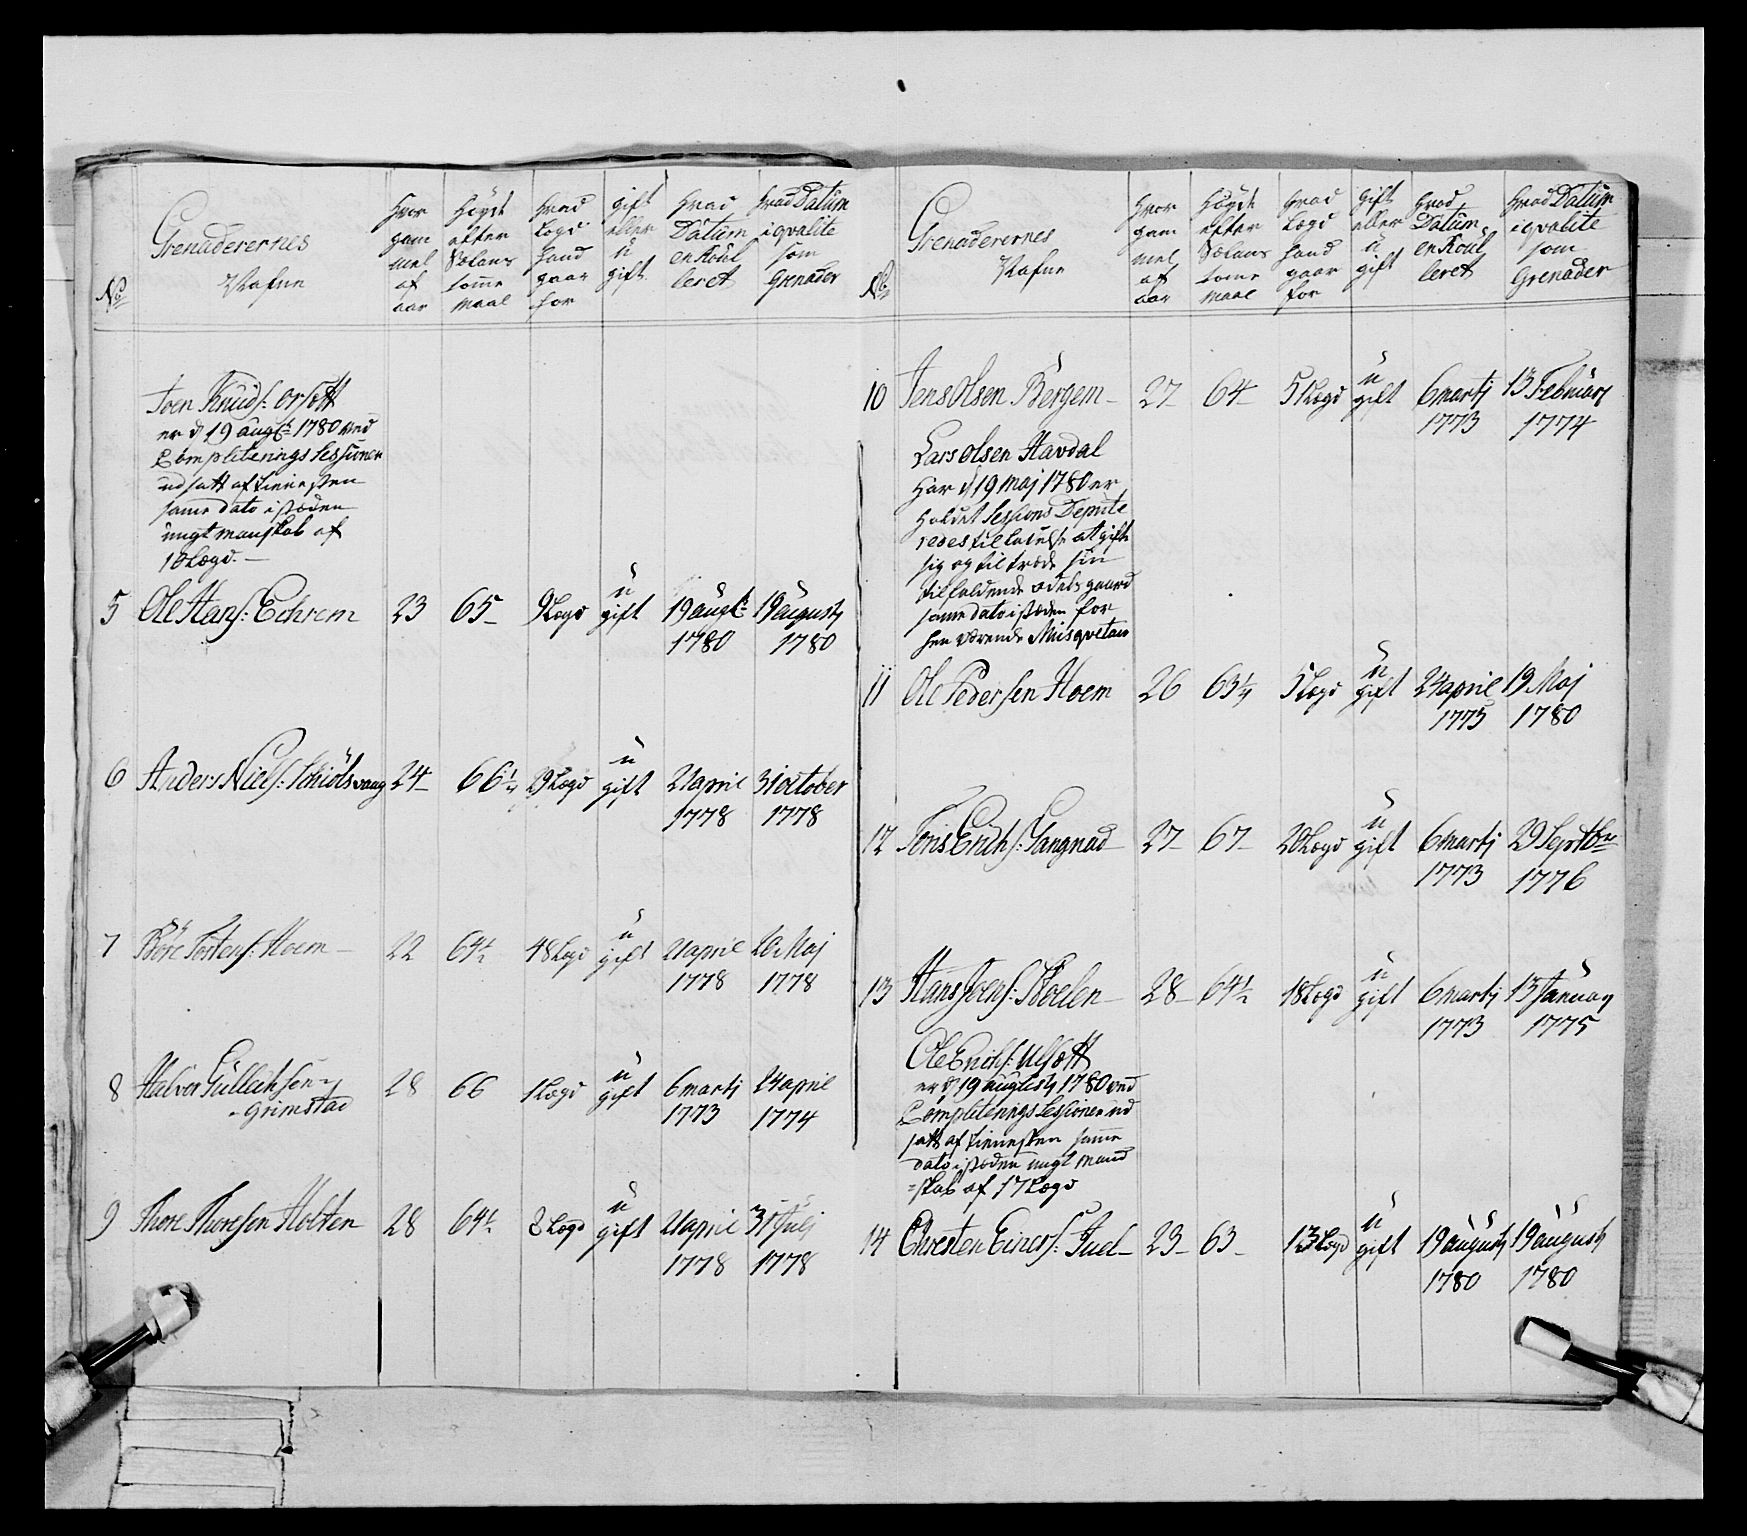 No
Grenaderernes
Nafne
Hvor
gam
mel
af
aar
Høyde
efter
Solans
somme
maal
hvad
Lægd
hand
gaar
for
gift
eller
ü
gift
hvad
Datum
enRoul
leret
hvad Datum
i qvalite
som
Grenader
Joen Knuds: Orsætt
er d 19 augst: 1780 ved
Completerings Sessionen
udsatt af tienesten
same dato istæden
ungt manskab af
10 Lægd. –
5 Ole Hans: Echrem 23 65– 9 Lægd ugift 19 augst: 19 augustj
1780 1780
6 Anders Niels: Schiölsvang 24– 66¼ 29 Lægd ugift 21 april 31 october
1778 1778
7 Tore Torstens: Hoem– 22 64½ 48 Lægd ugift 21 april 26 Maj
1778 1778
8 Halvor Gullichsen 28 66 1 Lægd ugift 6 martj 24 april
– Grimstad 1773 1774
9 Thore Thoresen Holten 28 64½ 2 Lægd ugift 21 april 31 Julj
1778 1778
No
Grenaderernes
Nafne
Hvor
gam
mel
af
aar
Høyde
efter
Solans
somme
maal
hvad
Lægd
hand
gaar
for
gift
eller
ü
gift
hvad
Datum
enRoul
leret
hvad Datum
i qvalite
som
Grenader
10 Jens Olsen Bergem– 27– 64– 51 Lægd ugift 6 martj 13 Februarj
1773 1774
Lars Olsen Havdal
har d 19 maj 1780 er
holdet Sessions Depute
redes tilladelse at gifte
sig og tiltræde sin
tilfaldende odelsgaard
same dato istæden for
hen værende Musqvetair
11 Ole Pedersen Hoem 26 63¼ 5 Lægd ugift 24 april 19 Maj
1775 1780
12 Joris Erichs: Gangnad 27– 67– 20 Lægd ugift 6 martj 29 Septbr
1773 1776
13 Hans Joens: Skoelen– 28– 64½ 18 Lægd ugift 6 martj 13 Januarj
1773 1775
Ole Erichs: Ulsætt
er d 19 augustj 1780 ved
Completerings Sessionen ud
satt af tienesten same
dato istæden ungt mand
=skab af 17 Lægd
14 Chresten Einers: Juel– 23– 63– 13 Lægd ugift 19 augustj 19 augustj
1780 1780